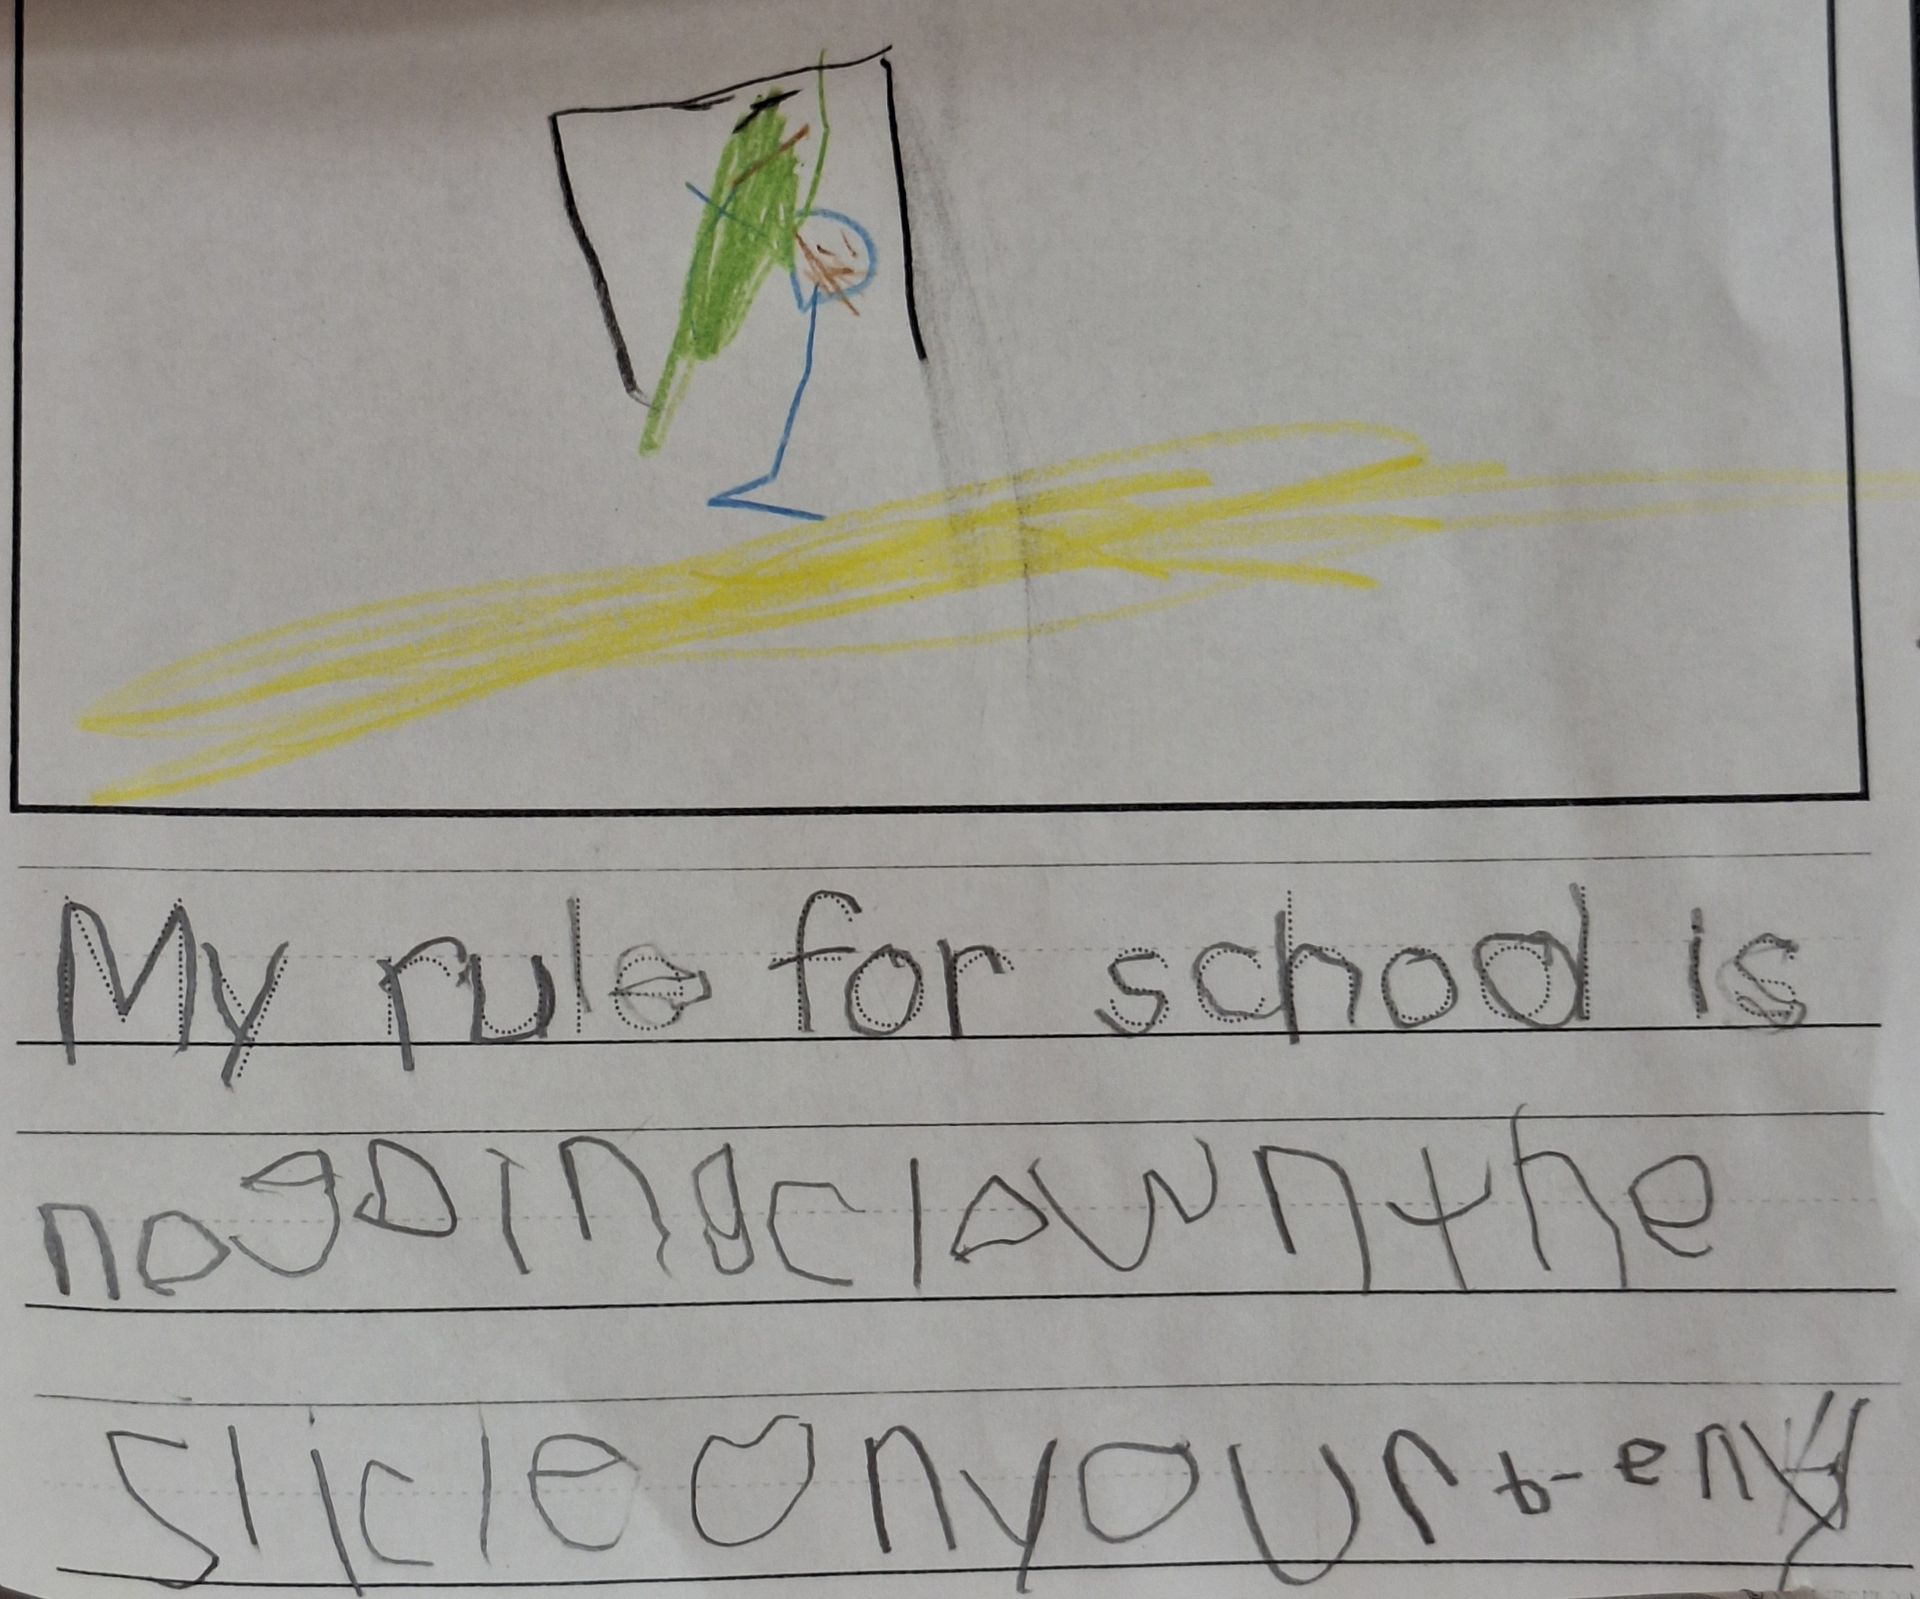 My rule for school is
no going down the
slide on your b-eny